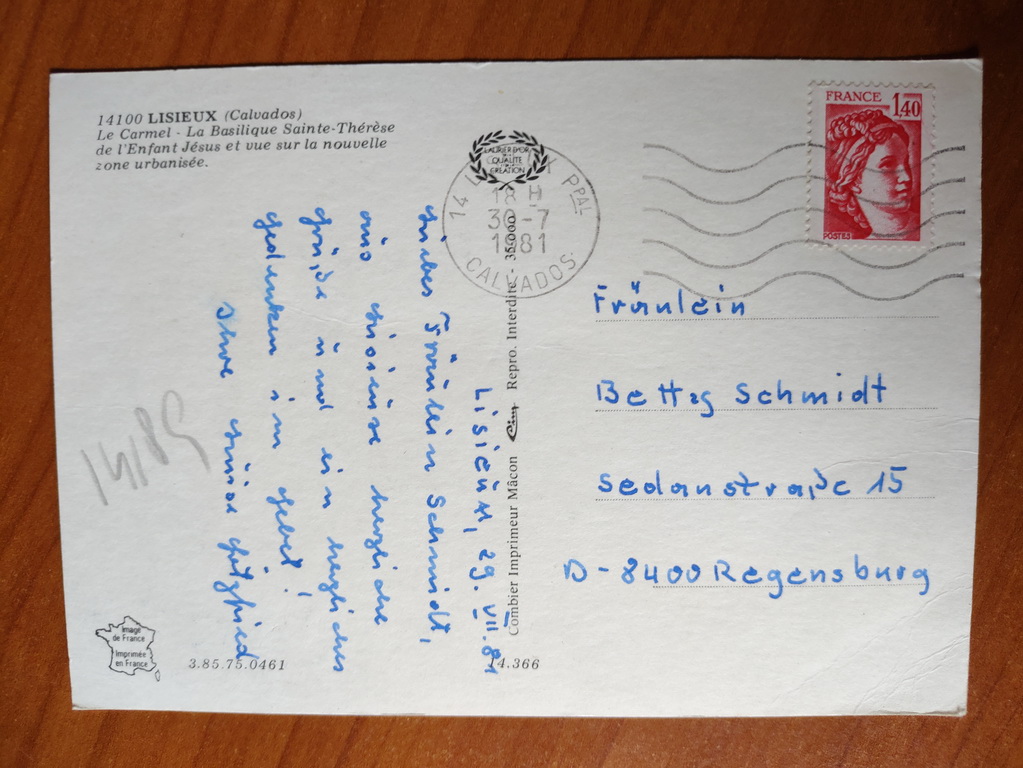 14100 LISIEUX (Calvados)
Le Carmel - La Basilique Sainte-Thérèse
de l'Enfant Jésus et vue sur la nouvelle
zone urbanisée.
LAURIER D'OR
QUALITE
CREATION
14 L PPAL
18 H
30-7
1981
CALVADOS
FRANCE 1,40
POSTES
Lisieux, 29. VII. 81
Liebes Fräulein Schmidt,
aus Lisieux herzliche
Grüße und ein herzliches
Gedenken im Gebet!
Ihre
Combier Imprimeur Mâcon Cim Repro. Interdite - 35.000
Fräulein
Schmidt
Sedanstraße 15
D-8400 Regensburg
14189
Image
de France
Imprimée
en France
3.85.75.0461
14.366